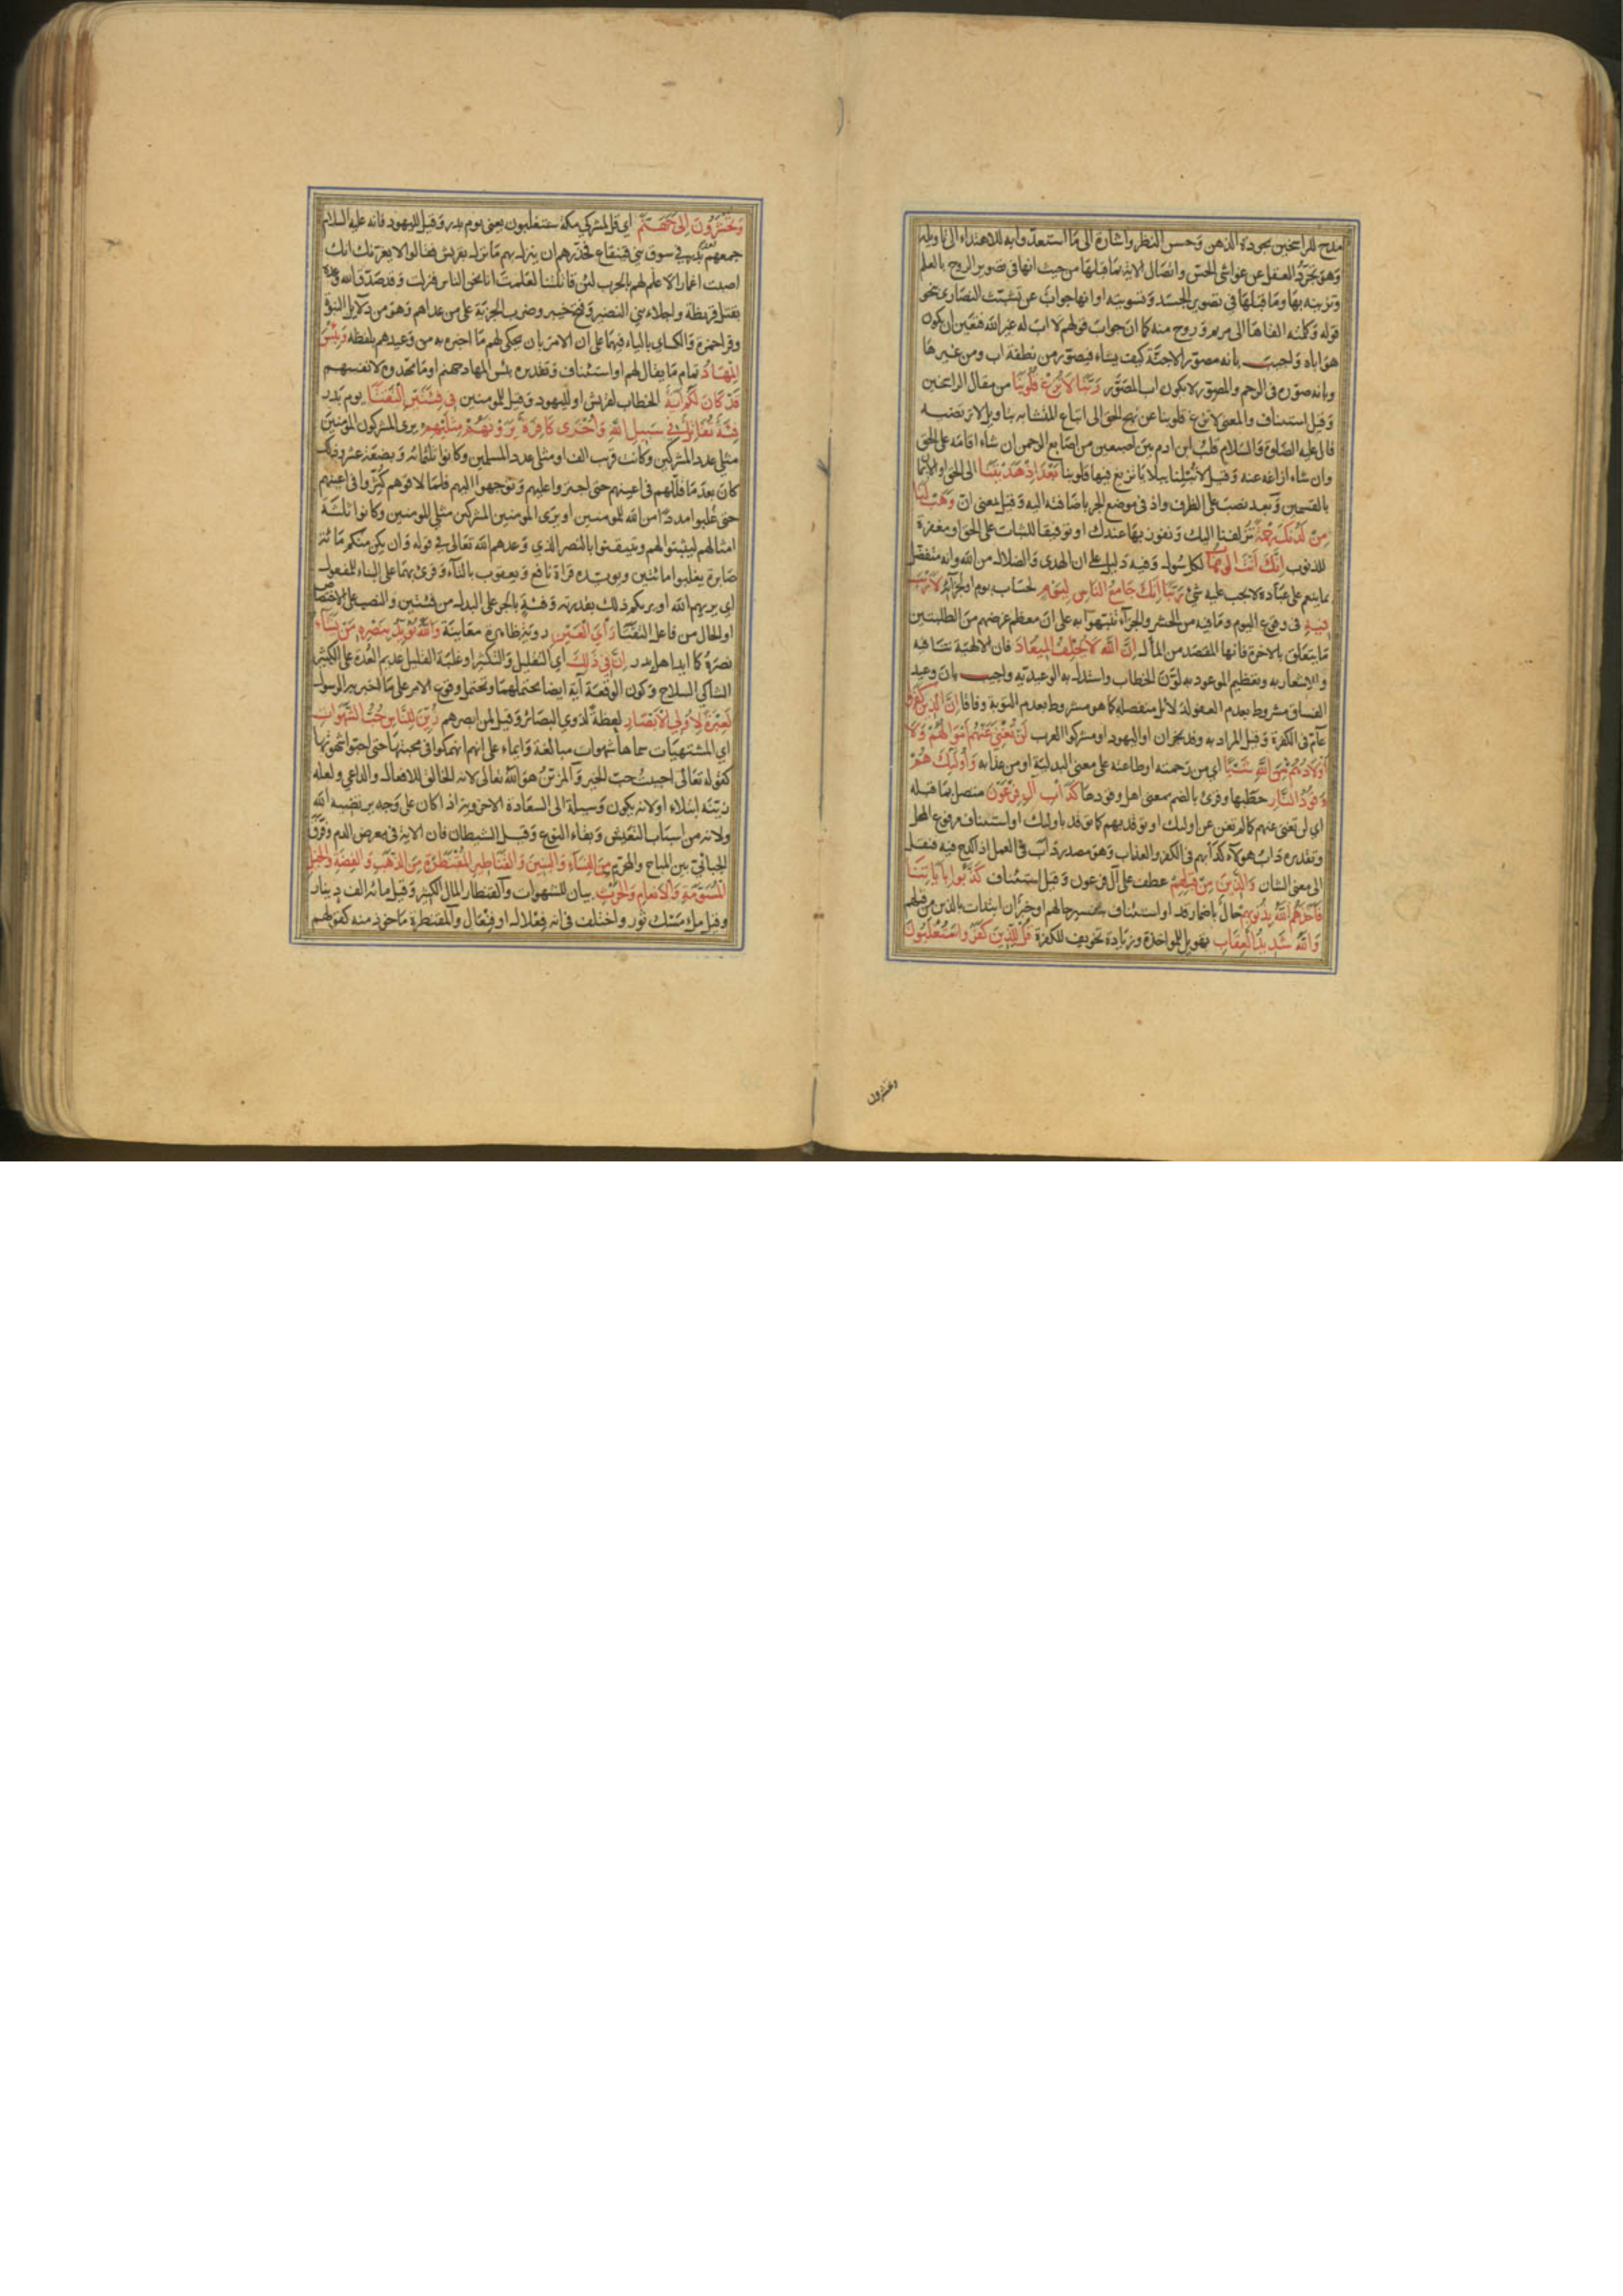 مدح للراسخين بجودة الذهن وحسن النظر واشارة الى ما استعدوا به للاهتداء الى تاويله
وهو تجرد العقل عن غواشى الحس واتصال الاية بما قبلها من حيث انها فى تصوير الروح بالعلم
وتزيينه بها وما قبلها فى تصوير الجسد وتسويته او انها جواب عن تشبث النصارى بنحو
قوله وكلمته القاها الى مريم وروح منه كما ان جواب قولهم لا اب له غير الله فتعين ان يكون
هو اباه واجيب بانه مصور الاجنة كيف يشاء فيصور من نطفة اب ومن غيرها
وبانه صوره فى الرحم والمصور لا يكون اب المصور ربنا لا تزغ قلوبنا من مقال الراسخين
وقيل استيناف والمعنى لا تزغ قلوبنا عن نهج الحق الى اتباع المتشابه بتاويل لا ترتضيه
قال عليه الصلوة والسلام قلب ابن ادم بين اصبعين من اصابع الرحمن ان شاء اقامه على الحق
وان شاء ازاغه عنه وقيل لا تبلنا ببلايا تزيغ فيها قلوبنا بعد اذ هديتنا الى الحق او الايمان
بالقسمين وبعد نصب على الظرف واذ فى موضع الجر باضافته اليه وقيل بمعنى ان وهب لنا
من لدنك رحمة تزلفنا اليك ونفوز بها عندك او توفيقا للثبات على الحق او مغفرة
للذنوب انك انت الوهاب لكل سول وفيه دليل على ان الهدى والضلال من الله وانه متفضل
بما ينعم على عباده لا يجب عليه شئ ربنا انك جامع الناس ليوم لحساب يوم او لجزائه لا ريب
فيه فى وقوع اليوم وما فيه من الحشر والجزآء نبهوا به على ان معظم غرضهم من الطلبتين
ما يتعلق بالاخرة فانها المقصد من المأل ان الله لا يخلف الميعاد فان الالهية تنافيه
وللاشعار به وتعظيم الموعود به لون الخطاب واستدل به الوعيدية واجيب بان وعيد
الفساق مشروط بعدم العفو لدلائل منفصلة كما هو مشروط بعدم التوبة وفاقا ان الذين كفروا
عآم فى الكفرة وقيل المراد به وفد نجران او اليهود او مشركوا العرب لن تغنى عنهم اموالهم ولا
اولادهم من الله شيئا اي من رحمته او طاعته على معنى البدلية او من عذابه واوليك هم
وقود النار حطبها وقرئ بالضم بمعنى اهل وقودها كدأب آل فرعون متصل بما قبله
اي لن تغنى عنهم كما لم تغن عن اوليك او توقد بهم كما توقد باوليك او استيناف مرفوع المحل
وتقديره داب هولآء كدأبهم فى الكفر والعذاب وهو مصدر دأب فى العمل اذا كدح فيه فنقل
الى معنى الشان والذين من قبلهم عطف على آل فرعون وقيل استيناف كذبوا بآياتنا
فاخذهم الله بذنوبهم حال باضمار قد او استيناف بتفسير حالهم او خبر ان ابتدات بالذين من قبلهم
والله شديد العقاب تهويل للمواخذة وزيادة تخويف للكفرة قل للذين كفروا ستغلبون
وتحشرون
وتحشرون الى جهنم اي قل لمشركي مكة ستغلبون يعنى يوم بدر وقيل لليهود فانه عليه السلام
جمعهم بعد بدر في سوق بني قينقاع فحذرهم ان ينزل بهم ما نزل بقريش فقالوا لا يغرنك انك
اصبت اغمارا لا علم لهم بالحرب لئن قاتلتنا لعلمت انا نحن الناس فنزلت وقد صدق الله وعده
بقتل قريظة واجلاء بني النضير وفتح خيبر وضرب الجزية على من عداهم وهو من دلايل النبوة
وقرا حمزة والكسايى بالياء فيهما على ان الامر بان يحكى لهم ما اخبره به من وعيدهم بلفظه وبئس
المهاد تمام ما يقال لهم او استيناف وتقديره بئس المهاد جهنم او ما مهدوه لانفسهم
قد كان لكم اية الخطاب لقريش او لليهود وقيل للمومنين فى فئتين التقتا يوم بدر
فئة تقاتل في سبيل الله واخرى كافرة يرونهم مثليهم يرى المشركون المومنين
مثلى عدد المشركين وكانت قرب الف او مثلى عدد المسلمين وكانوا ثلثمائه وبضعة عشر وذلك
كان بعد ما قللهم فى اعينهم حتى اجترواعليهم وتوجهوا اليهم فلما لاقوهم كثروا فى اعينهم
حتى غلبوا مددا من الله للمومنين او يرى المومنين المشركين مثلى المومنين وكانوا ثلثة
امثالهم ليثبتوا لهم ويتيقنوا بالنصر الذي وعدهم الله تعالى في قوله وان يكن منكم مائة
صابرة يغلبوا مائتين ويويده قراة نافع ويعقوب بالتآء وقرئ بهما على البناء للمفعول
اى يريهم الله او يريكم ذلك بقدرته وفئة بالجر على البدل من فئتين والنصب على الاختصاص
او الحال من فاعل التقتا رأي العين روية ظاهرة معاينة والله يويد بنصره من يشاء
نصره كما ايد اهل بدر ان فى ذلك اي التقليل والتكثير او غلبة القليل عديم العدة على الكثير
الشاكى السلاح وكون الوقعة آية ايضا يحتملهما ويحتمل وقوع الامر على ما اخبر به الرسول
لعبرة لاولي الابصار لعظة لذوي البصائر وقيل لمن ابصرهم زين للناس حب الشهوات
اي المشتهيات سماها شهوات مبالغة وايماء على انهم انهمكوا فى محبتها حتى احبوا شهوتها
كقوله تعالى احببت حب الخير والمزين هو الله تعالى لانه الخالق للافعال والدواعي ولعله
زينه ابتلاء او لانه يكون وسيلة الى السعادة الاخروية اذا كان على وجه يرتضيه الله
ولانه من اسباب التعيش وبقاء النوع وقيل الشيطان فان الاية فى معرض الذم وفرق
الجبائى بين المباح والمحرم من النساء والبنين والقناطير المقنطرة من الذهب والفضة والخيل
المسومة والانعام والحرث بيان للشهوات والقنطار المال الكثير وقيل مائه الف دينار
وقيل ملء مسك ثور واختلف فى انه فعلال او فنعال والمقنطرة ماخوذ منه كقولهم